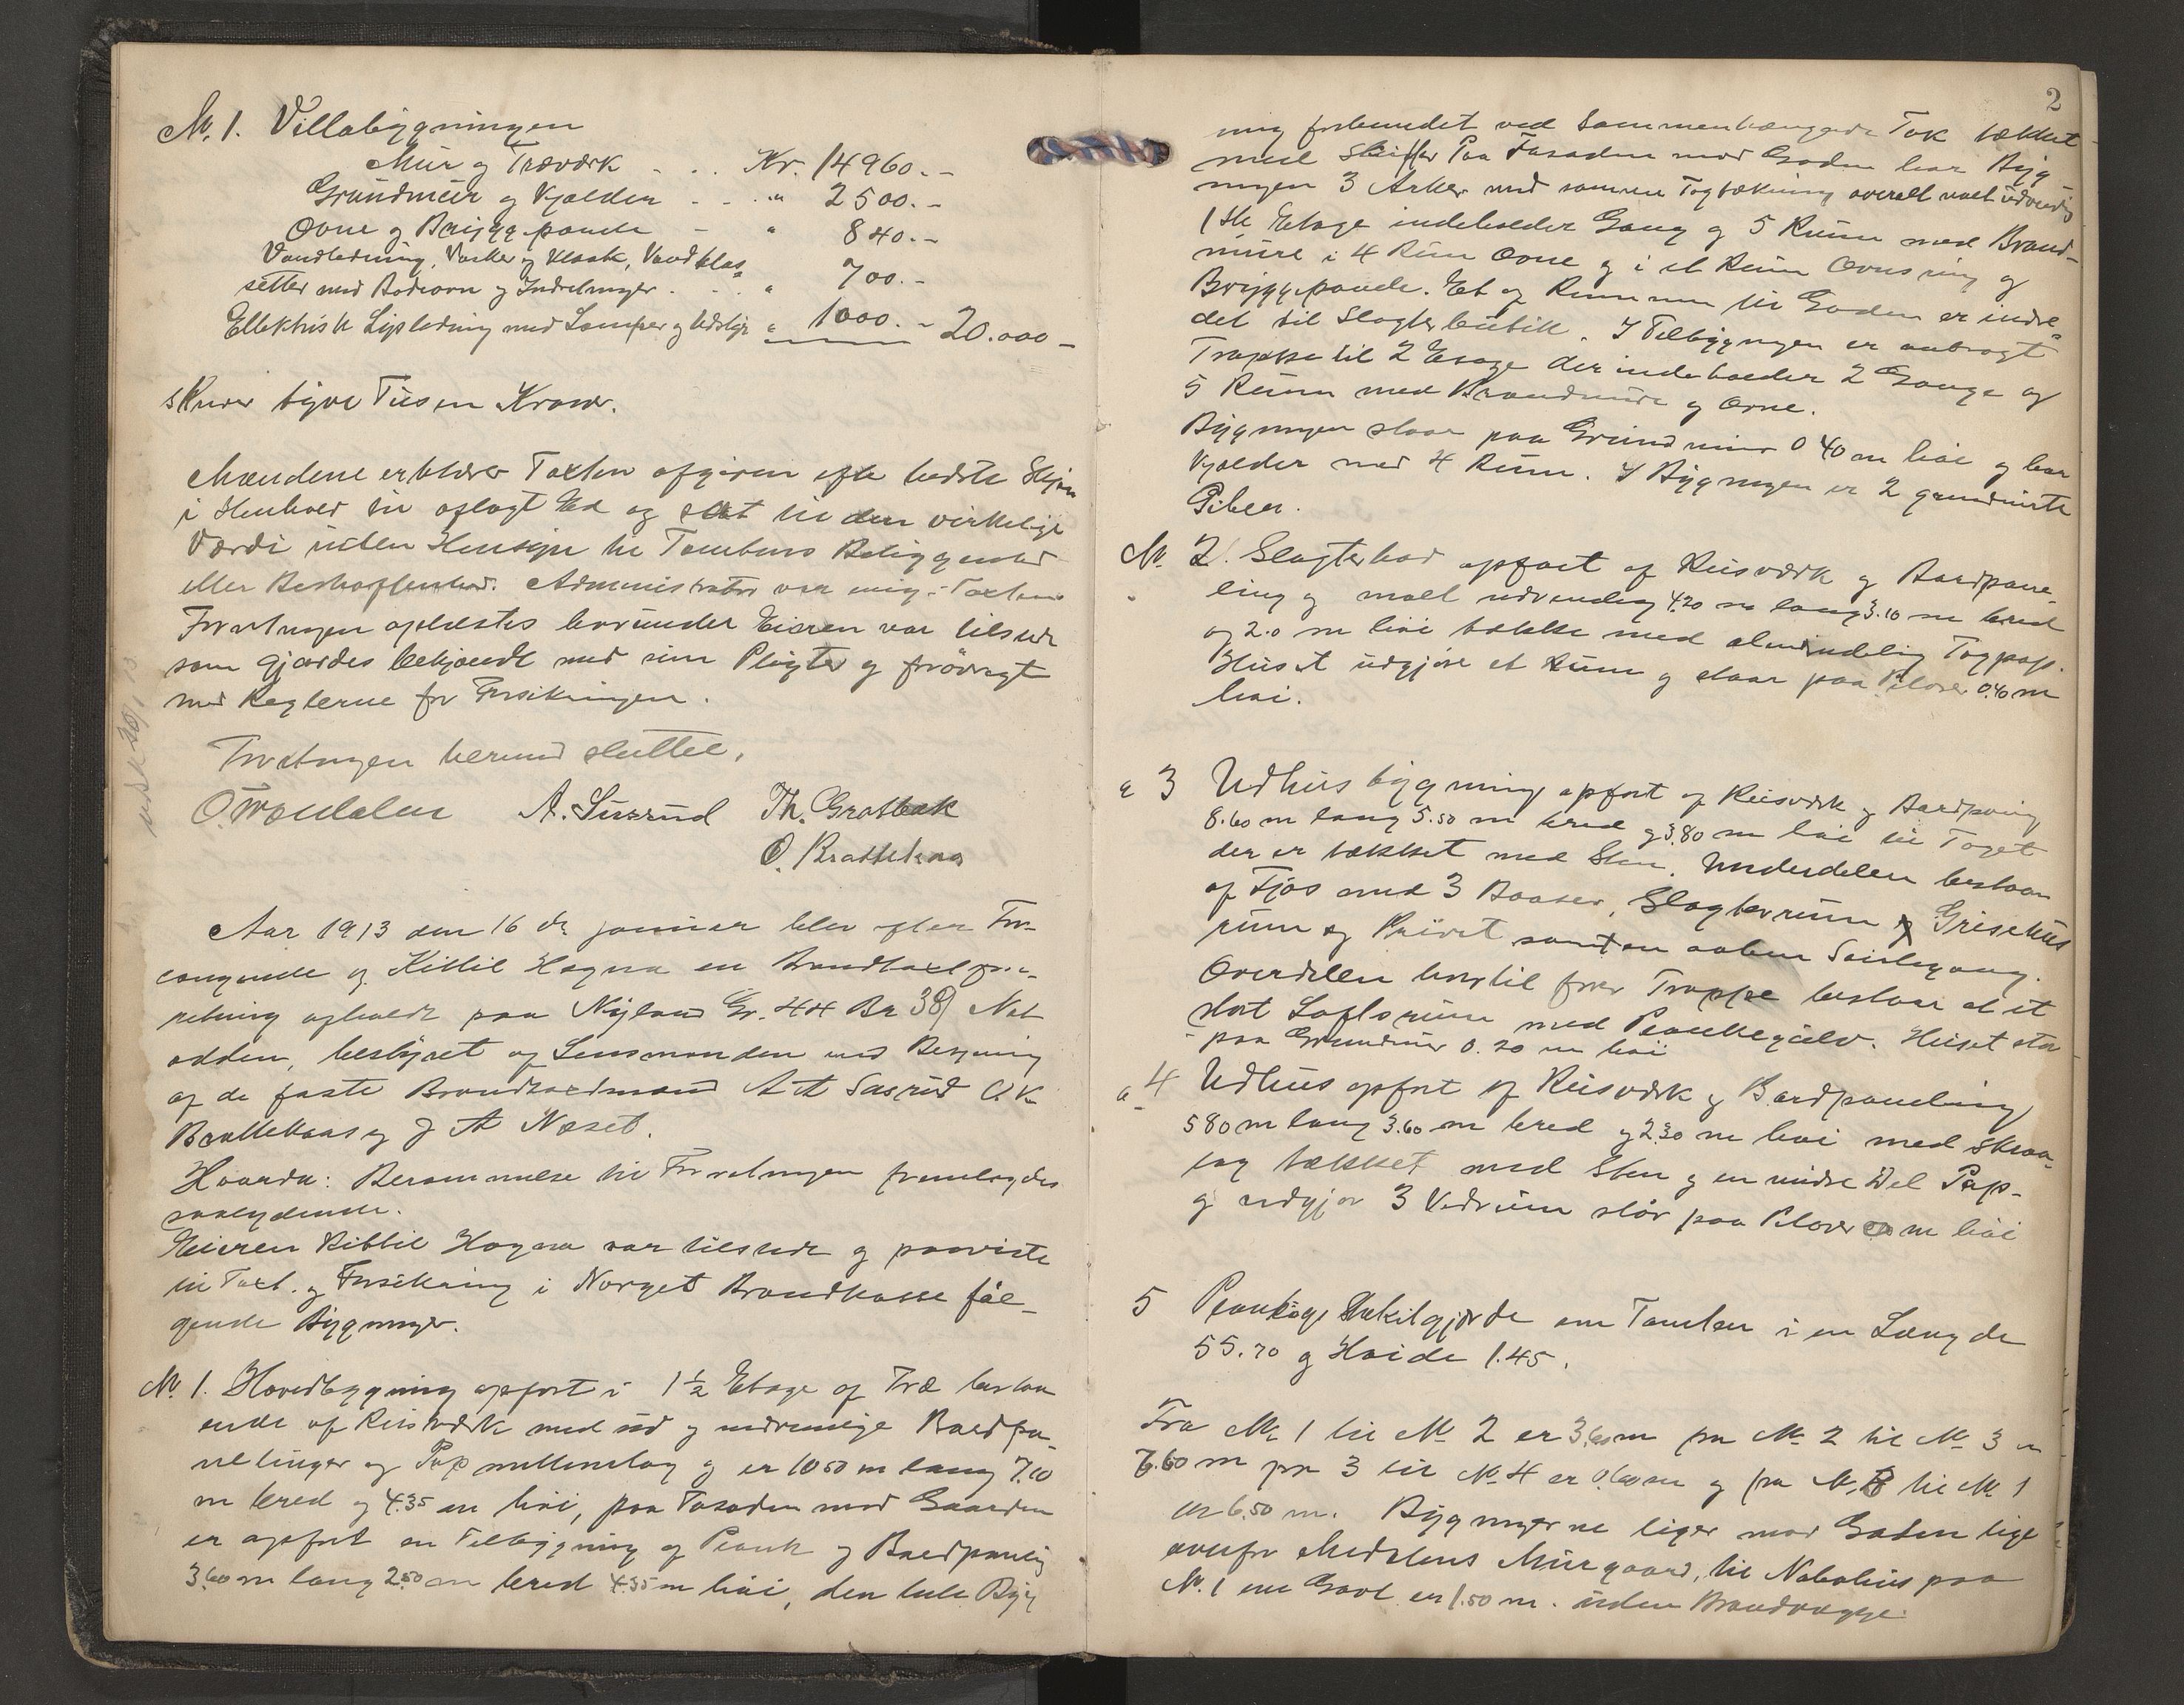 №. 1. Villabygningen
Mür og Træværk - . . Kr. 14960.-
Gründmür og Kjælder - - . " 2500.-
Ovne og Bryggepande - " 840.-
Vandledning, Vasker og Kloak, Vandklos
setter med Badeovn og Indretninger . - . " 700.-
Ellektrisk Lysledning med Lamper og Udstyr " 1000.- 20.000-
skriver tyve Tüsen Kroner.
Mændene erklærer Taxten afgiven efter bedste Skjøn
i Henhold til aflagt Ed og sat til den virkelige
Værdi üden Hensyn til Tomtens Beliggenhed
eller Beskaffenhed. Administrator var enig i Taxten
Forretningen oplæstes heründer Eieren var tilstede
som gjordes bekjendt med sine Pligter og frövrigt
med Reglerne for Forsikringen.
Forretningen hermed sluttet.
O. Trædalen A. Süsrüd Th. Grotbæk
O. Brattekaas
Aar 1913 den 16 de januar blev efter For-
langende af Kittil Hogna en Brandtaxtfor-
retning afholdt paa Nyland Gr. 44 Br 38 Not
odden, bestyret af Lensmanden med Betjening
af de faste Brandtaxtmænd A A Süsrüd O K
Brattekaas og J A Næset.
Hvorda: Berammelse til Forretningen fremlagdes
saalydende.
Eieren Kittil Hogna var tilstede og paaviste
til Taxt. og Forsikring i Norges Brandkasse føl-
gende Bygninger.
№. 1. Hovedbygning opført i 1½ Etage af Træ bestaa
ende af Reisværk med üd og indvendige Bordpa-
nelinger og Pap mellemlag og er 10 50 m lang 7.10
m bred og 4.35 m høi, paa Fasaden mod Gaarden
er opført en Tilbygning af Plank og Bordpaneling
3.60 m lang 2.50 m bred 4.35 m høi, den hele Byg
2
ning forbundet ved Sammenhængende Tak tækket
med Skiffer Paa Fasaden mod Gaden har Byg
ningen 3 Arker med samme Tagtækning overalt malt üdvendig
1ste Etage indeholder Gang og 5 Rüm med Brand-
müre i 4 Rüm Ovne og i et Rüm Ovnsring og
Bryggepande. Et af Rummene til Gaden er indre-
det til Slagterbütik. I Tilbygningen er anbragt
Trappe til 2 Etage der indeholder 2 Gange og
5 Rüm med Brandmüre og Ovne.
Bygningen staar paa Gründmür 0 40 m høi og har
Kjælder med 4 Rüm. I Bygningen er 2 grundmürte
Piber.
№. 2. Slagterbod opført af Reisværk og Bordpane-
ling og malt udvendig 4.20 m lang 3.10 m bred
og 2.0 m høi tække med almindelig Tagpap.
Hüset üdgjør et Rüm og staar paa Pilarer 0.40 m
høi.
" 3 Udhüs bygning opført af Reisværk og Bordpaning
8.60 m lang 5.50 m bred og 3.80 m høi til Taget
der er tækket med Sten. Underdelen bestaar
af Fjøs med 3 Baaser, Slagterrüm og Grisehüs
rüm og Privet samt en aaben Svalegang.
Overdelen hvortil fører Trappe bestaar af et
stort Loftsrüm med Plankegülv. Hüset staar
paa Grundmür 0.20 m høi
" 4 Udhüs opført af Reisværk og Bordpaneling
5 80 m lang 3.60 m bred og 2.30 m høi med skraa-
tag tækket med Sten og en mindre Del Pap-
og üdgjør 3 Vedrüm står paa Pilarer m høi
5 Plankegjærde om Tomten i en Længde
55.70 og Høide 1.45.
Fra № 1 til № 2 er 3.60 m fra № 2 til № 3 er
7.60 m fra 3 til № 4 er 0.60 m og fra №. til № 1
er 6.50 m. Bygningerne ligger mod Gaden lige
ovenfor Medalens Mürgaard, til Nabohüs paa
№. 1 ene Gavl er 1.50 m. üden Brandvægge.